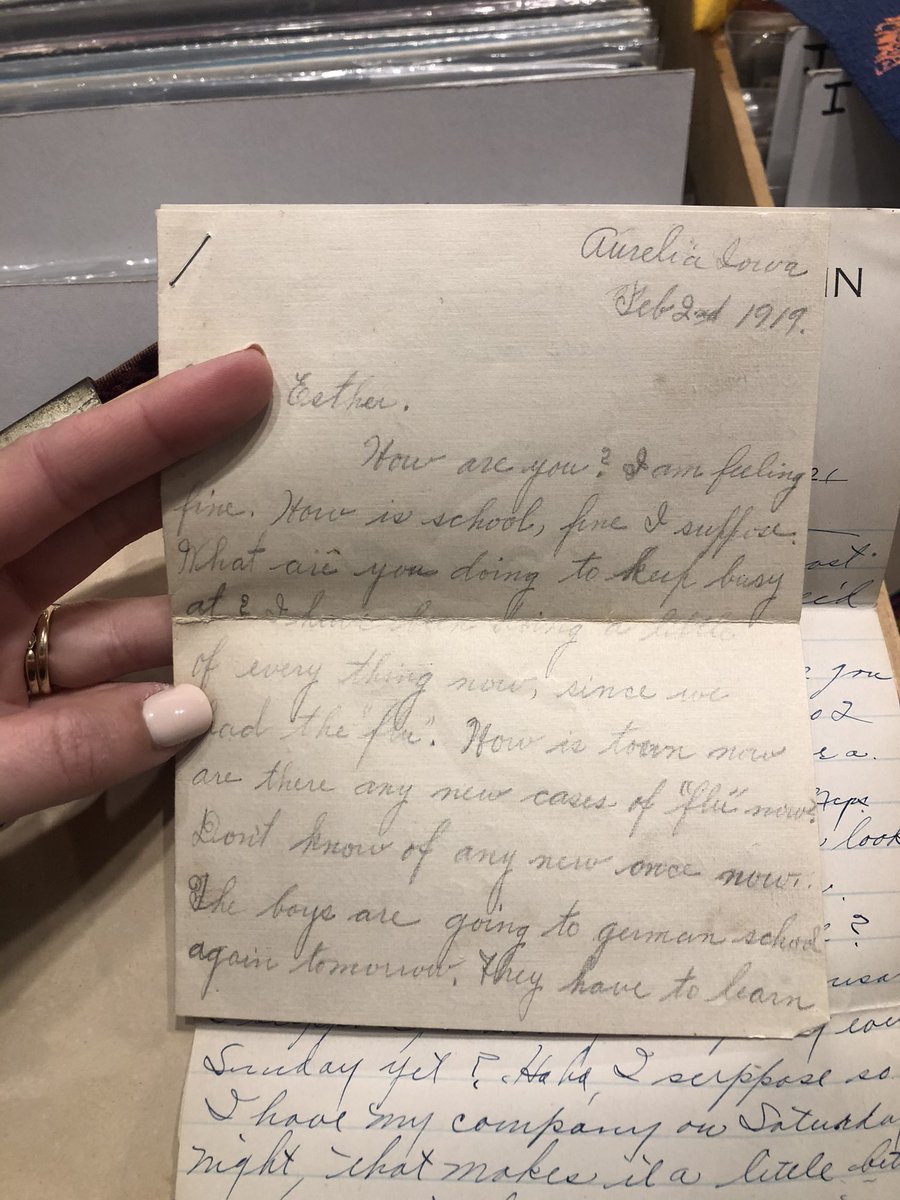 I
IN
Aurelia Iowa
Feb 2nd 1919.
Esther.
How are you? I am feeling
fine. How is school, fine I suppose.
What are you doing to keep busy
at? I have been doing a little
of every thing now, since we
had the "flu". How is town now
are there any new cases of "flu" now?
Don't know of any new once now.
The boys are going to german school
again tomorrow. They have to learn
you
look
?
Sunday yet? Haha, I serppose so
I have my company on Saturday
night, that makes it a little bit